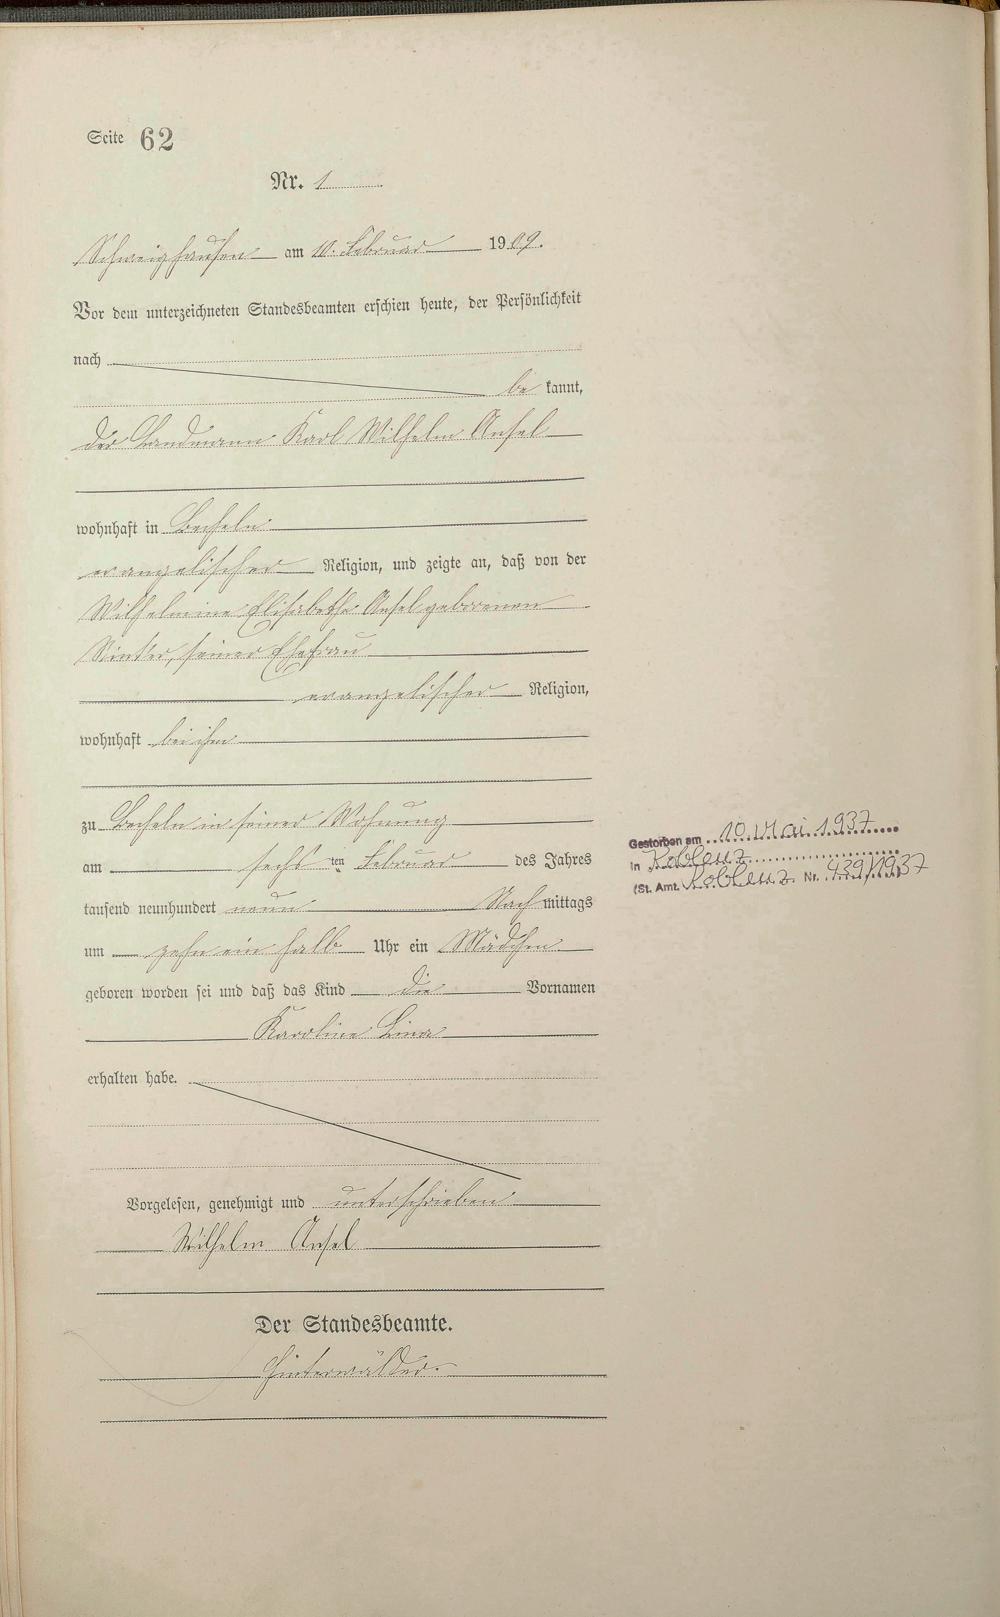 Seite 62
Nr. 1
Schweighausen am 10. Februar 1909.
Vor dem unterzeichneten Standesbeamten erschien heute, der Persönlichkeit
nach
be kannt,
der Landmann Karl Wilhelm Ansel
wohnhaft in Becheln
evangelischer Religion, und zeigte an, daß von der
Wilhelmine Elisabethe Ansel geborenen
Winter, seiner Ehefrau
evangelischer Religion,
wohnhaft bei ihm
zu Becheln in seiner Wohnung
am sechs ten Februar des Jahres
tausend neunhundert neun Nach mittags
um zehn ein halb Uhr ein Mädchen
geboren worden sei und daß das Kind die Vornamen
Karoline Lina
erhalten habe.
Vorgelesen, genehmigt und unterschrieben
Wilhelm Ansel
Der Standesbeamte.
Hinterwälder.
Gestorben am 10. Mai 1937
in Koblenz
(St. Amt. Koblenz Nr. 439/1937